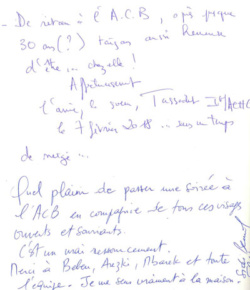 - De retour à l'A.C.B, après presque
30 ans (?) toujours aussi heureuse
d'être ... chez elle !
le 7 février 2018 ... sous un temps
de neige ...
Quel plaisir de passer une soirée à
l'ACB en compagnie de tous ces visages
ouverts et souriants.
C'est un vrai ressourcement.
Merci à Beben, Arezki, Mbarek et toute
l'équipe. Je me sens vraiment à la maison.